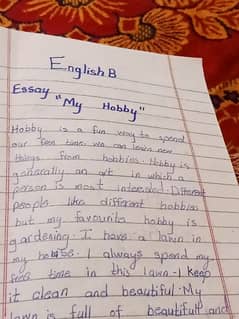 English B
Essay "My Hobby"
Hobby is a fun way to spend
our free time. We can learn new
things from hobbies. Hobby is
generally an art in which a
person is most interested. Different
people like different hobbies
but my favourite hobby is
gardening. I have a lawn in
my house. I always spend my
free time in this lawn. I keep
it clean and beautiful. My
lawn is full of beautiful and